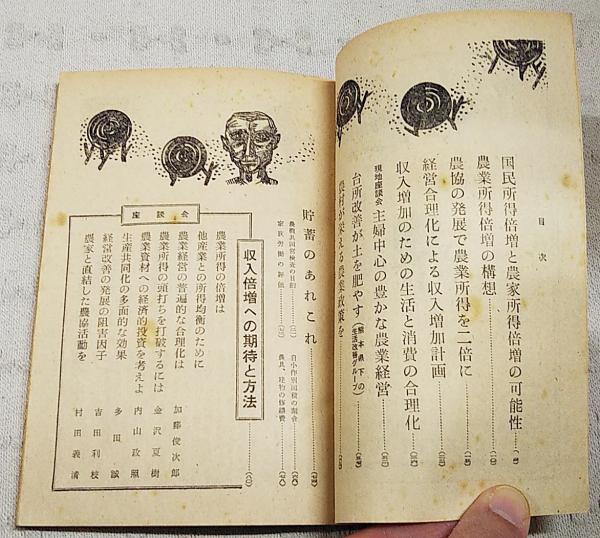 目次
国民所得倍増と農家所得倍増の可能性
農業所得倍増の構想
農協の発展で農業所得を二倍に
経営合理化による収入増加計画
収入増加のための生活と消費の合理化
現地座談会 主婦中心の豊かな農業経営
台所改善が土を肥やす（熊本県下の生活改善グループ）
農村が栄える農業政策を
貯蓄のあれこれ
農機共同営検査の目的
家族労働の評価
自小作別面積の割合
農具、建物の修繕費
座談会
収入倍増への期待と方法
農業所得の倍増は
他産業との所得均衡のために
農業経営の普遍的な合理化は
農業所得の頭打ちを打破するには
農業資材への経済的投資を考えよ
生産共同化の多面的な効果
経営改善の発展の阻害因子
農家と直結した農協活動を
加藤俊次郎
金沢夏樹
内山政照
多田誠
吉田利枝
村田義清